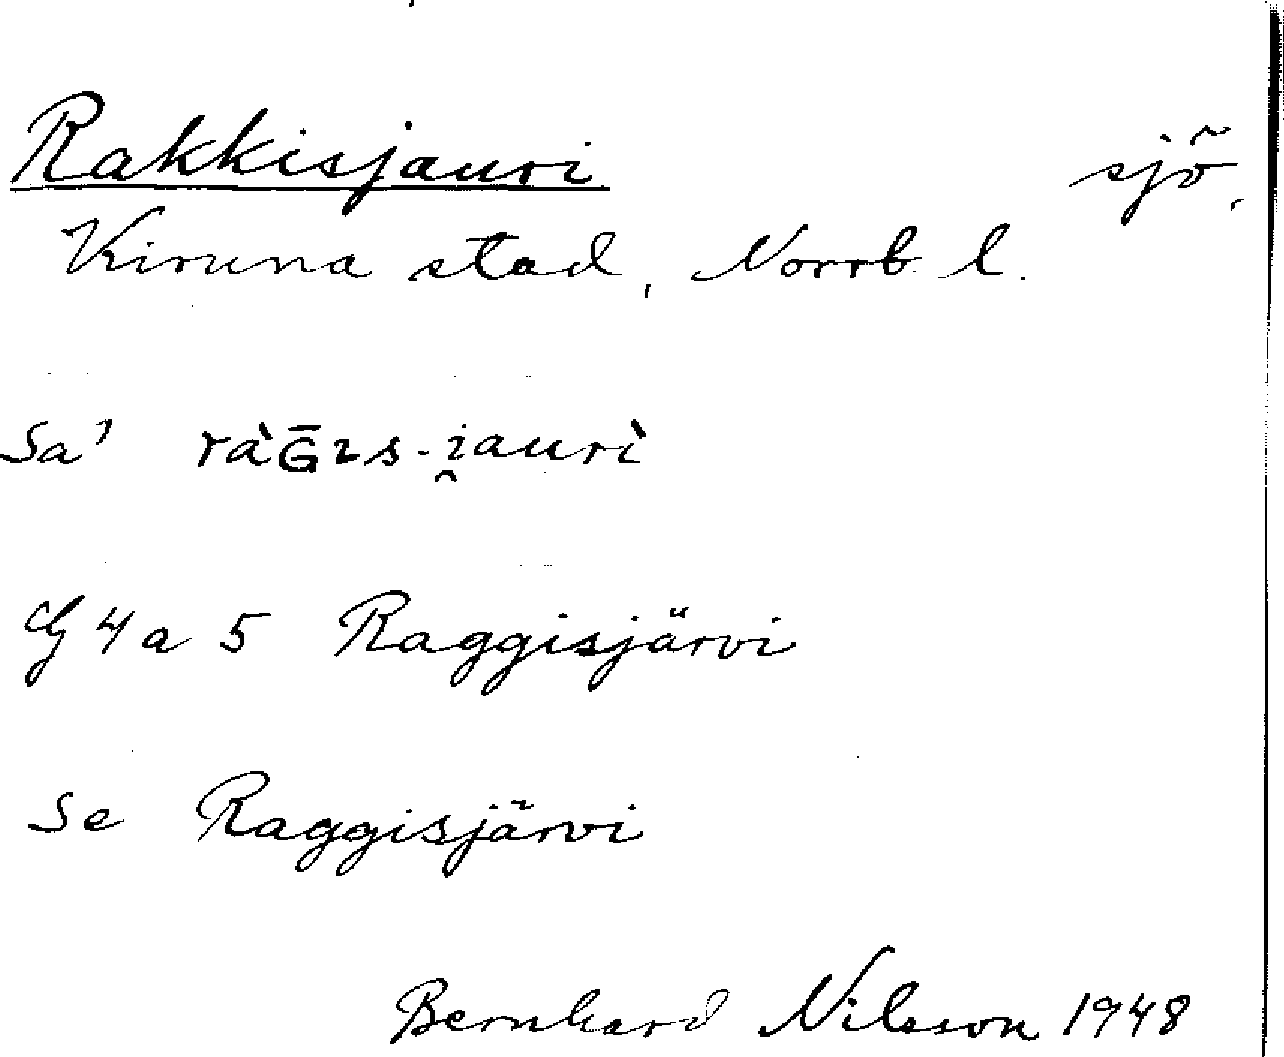 Rakkisjauri sjö,
Kiruna stad, Norrb. l.
Sa' ràḠıs-i̯aurì
G4a5 Raggisjärvi
Se Raggisjärvi
Bernhard Nilsson 1948